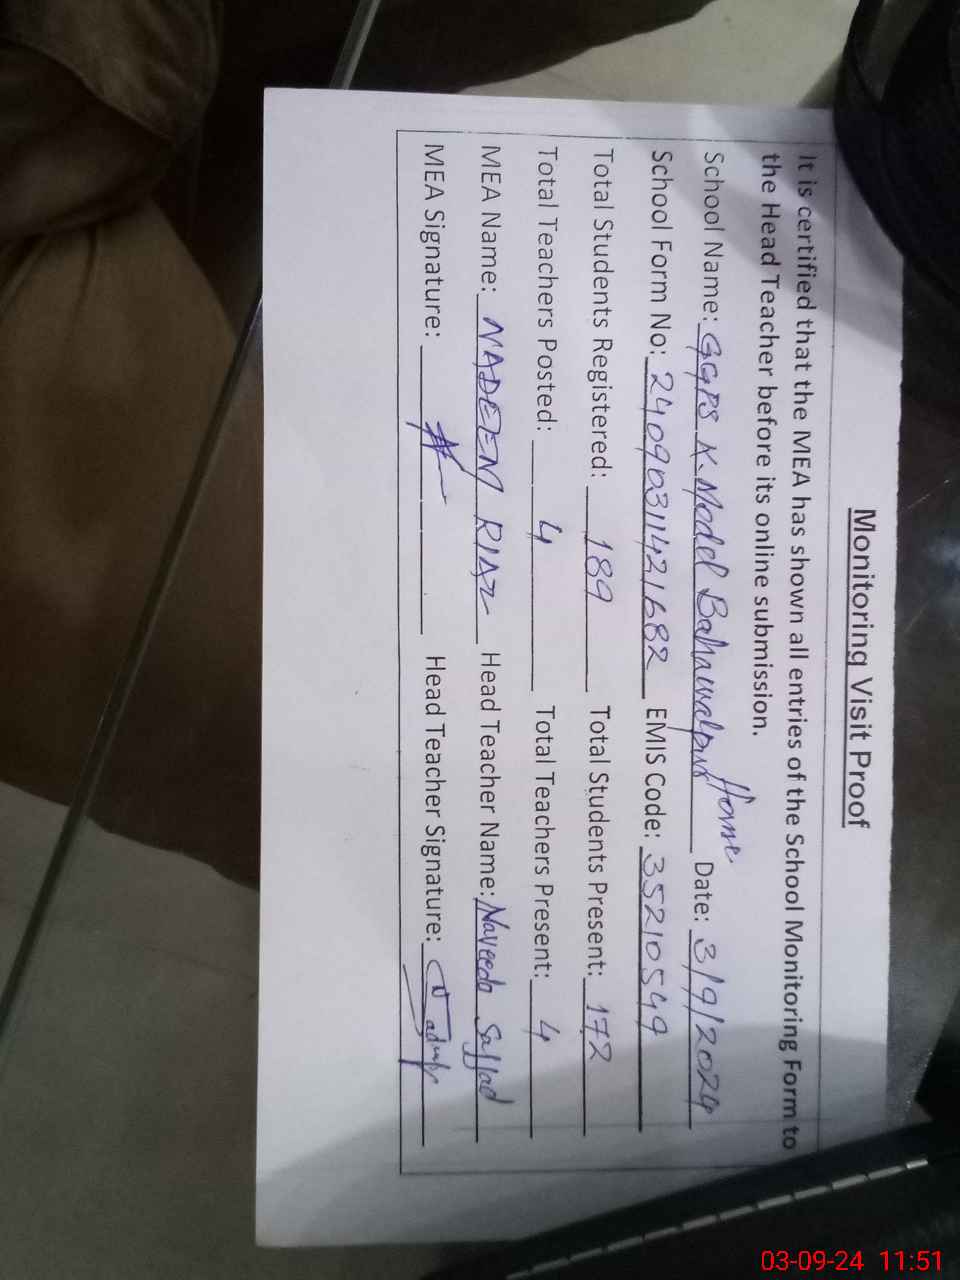 Monitoring Visit Proof
It is certified that the MEA has shown all entries of the School Monitoring Form to
the Head Teacher before its online submission.
School Name: GGPS K. Model Bahawalpur Home Date: 3/9/2024
School Form No: 24090311421682 EMIS Code: 35210549
Total Students Registered: 189 Total Students Present: 172
Total Teachers Posted: 4 Total Teachers Present: 4
MEA Name: NADEEM RIAZ Head Teacher Name: Naveeda Sajjad
MEA Signature: Head Teacher Signature:
03-09-24 11:51